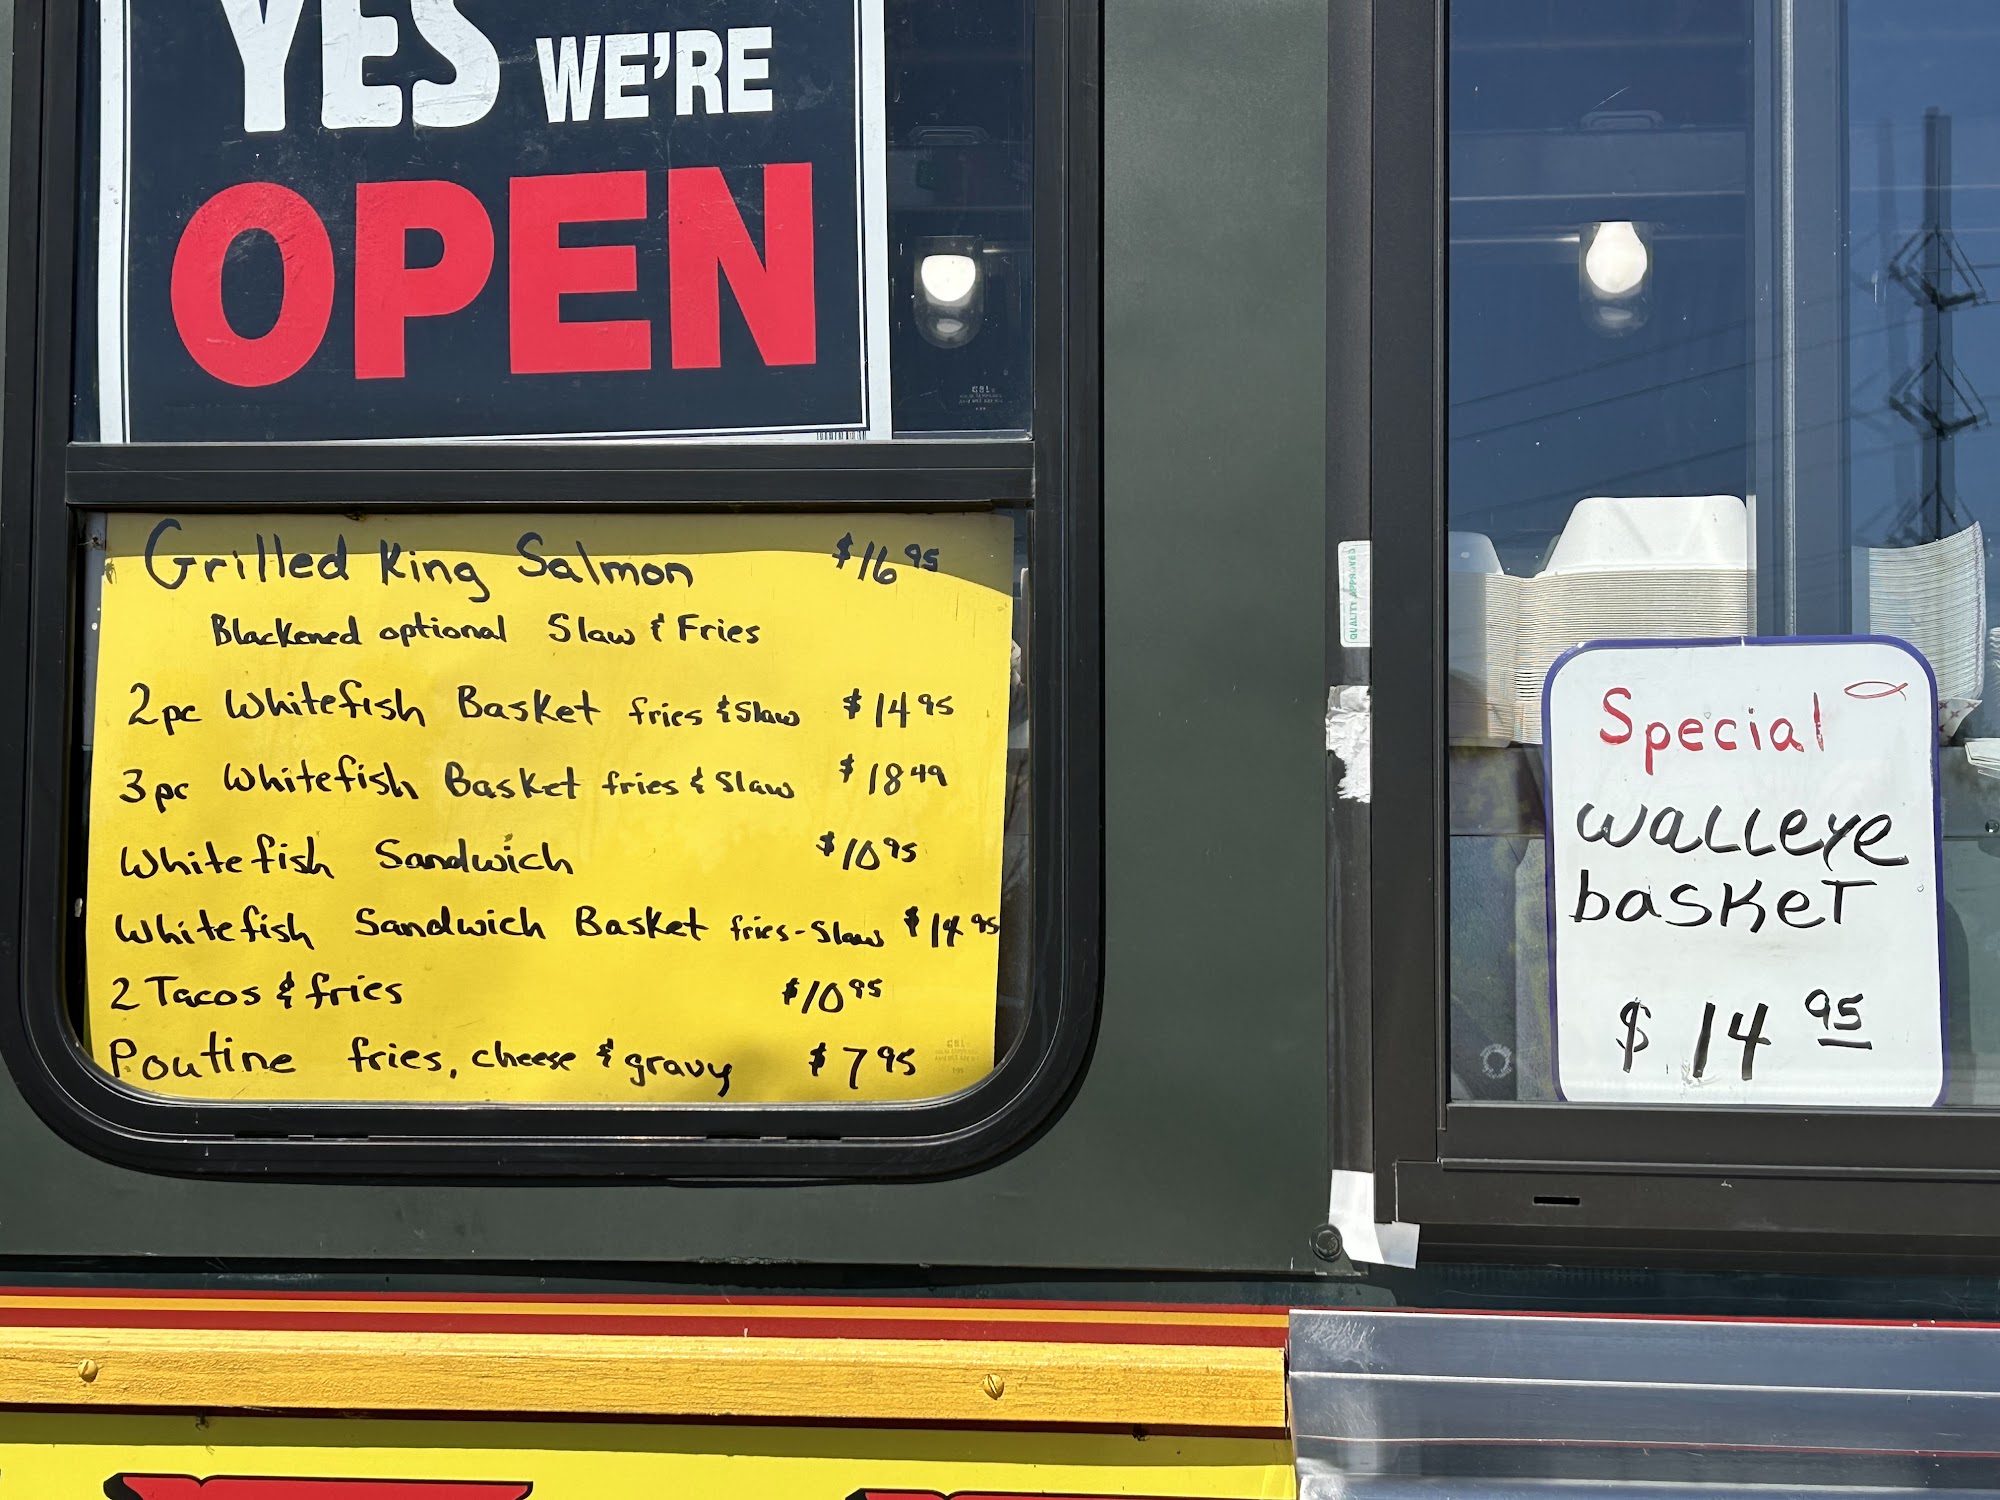 YES WE'RE
OPEN
Grilled King Salmon $16 95
Blackened optional Slaw & Fries
2pc Whitefish Basket fries & Slaw $14 95
3pc Whitefish Basket fries & Slaw $18 49
Whitefish Sandwich $10 95
Whitefish Sandwich Basket fries-Slaw $14 95
2 Tacos & fries $10 95
Poutine fries, cheese & gravy $7 95
QUALITY APPROVED
Special
walleye
basket
$14 95